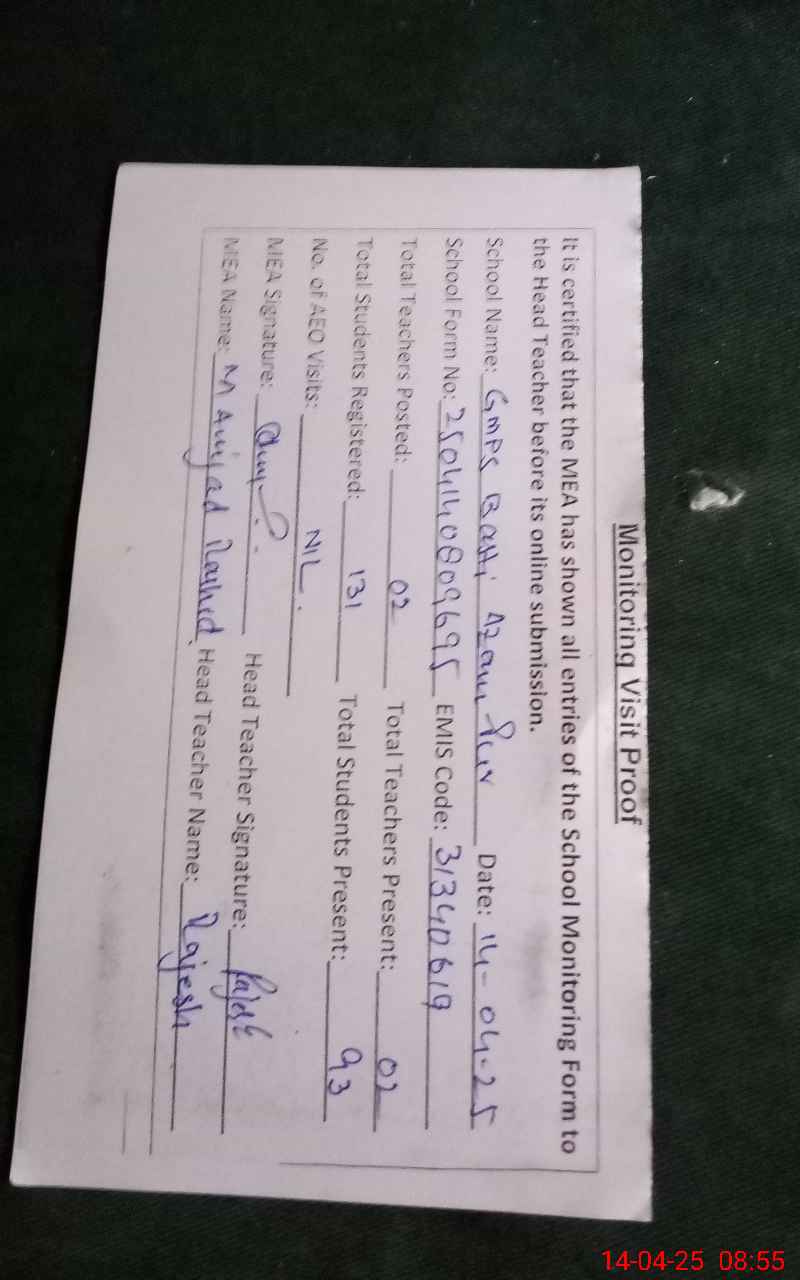 Monitoring Visit Proof
It is certified that the MEA has shown all entries of the School Monitoring Form to
the Head Teacher before its online submission.
School Name: GMPS Basti Azam Pur Date: 14-04-25
School Form No: 250414080969​5 EMIS Code: 31340619
Total Teachers Posted: 02 Total Teachers Present: 02
Total Students Registered: 131 Total Students Present: 93
No. of AEO Visits: NIL.
MEA Signature: Head Teacher Signature: Rajesh
MEA Name: M Amjad Rashid Head Teacher Name: Rajesh
14-04-25 08:55